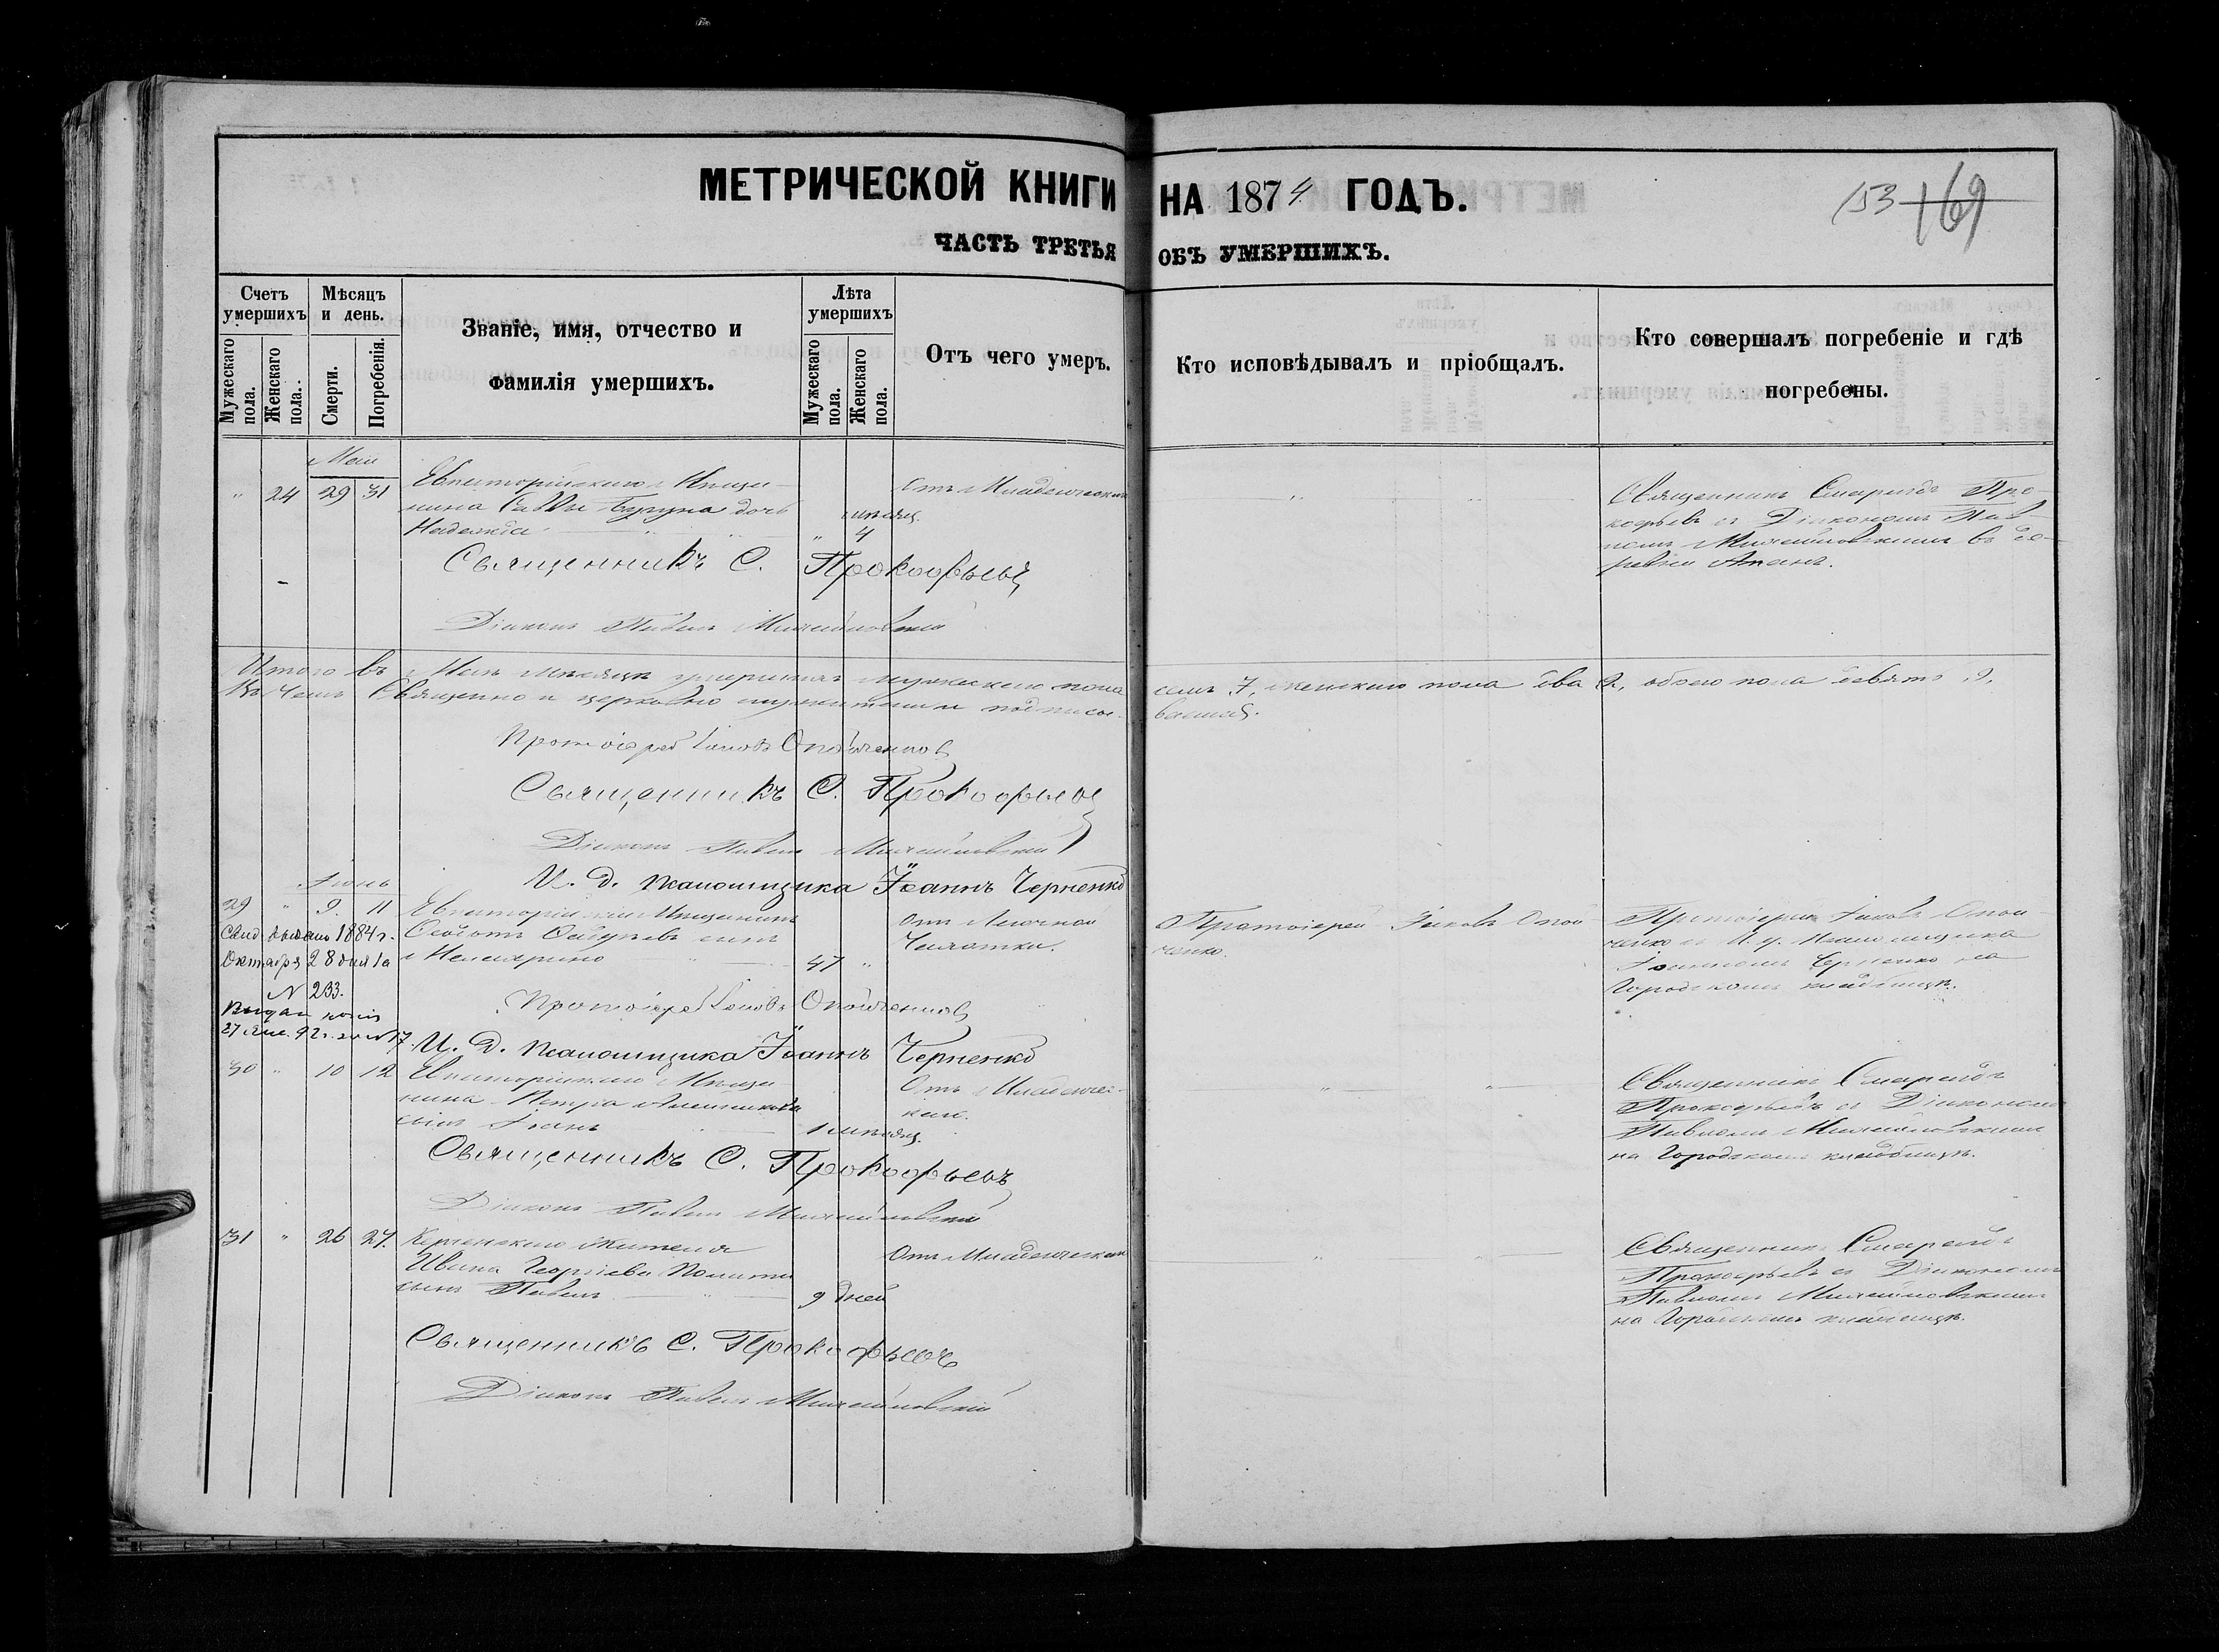 МЕТРИЧЕСКОЙ КНИГИ НА 1874 ГОДЪ.
153 169
ЧАСТЬ ТРЕТЬЯ ОБЪ УМЕРШИХЪ.
Счетъ умершихъ
Мѣсяцъ и день.
Званіе, имя, отчество и фамилія умершихъ.
Лѣта умершихъ
Отъ чего умеръ.
Кто исповѣдывалъ и пріобщалъ.
Кто совершалъ погребеніе и гдѣ погребены.
Мужескаго пола.
Женскаго пола.
Смерти.
Погребенія.
Мужескаго пола.
Женскаго пола.
Май
" 24 29 31
Евпаторійскаго Мѣща-
нина Саввы дочь
Надежда
мѣсяц.
" 4
Отъ Младенческой
Священникъ Смарагдъ Про-
кофьевъ съ Діакономъ Пав-
ломъ Михайловскимъ въ де-
ревни
Священникъ С. Прокофьевъ
Діаконъ Павелъ Михайловскій
Итого въ Маѣ мѣсяцѣ умершихъ мужескаго пола семь 7, женскаго пола два 2, обоего пола девять 9.
Въ чемъ Священно и церковно служители и подписы-
ваемся.
Протоіерей Іаковъ Опойченковъ
Священникъ С. Прокофьевъ
Діаконъ Павелъ Михайловскій
И. д. псаломщика Іоаннъ Черненко
Іюнь
29 " 9. 11
Евпаторійскій Мѣщанинъ
сынъ
47 "
Отъ Легочной
Чахотки.
Протоіерей Іаковъ Опой-
ченко.
Протоіерей Іаковъ Опой-
ченко съ И. д. Псаломщика
Іоанномъ Черненко на
Городскомъ кладбищѣ.
Свид. выдано 1884 г.
Октября 28 дня за
N 233.
Выдан копія
27 Янв. 92 г. за № 17.
Протоіерей Іаковъ Опойченковъ
И. д. псаломщика Іоаннъ Черненко
30 " 10 12
Евпаторійскаго Мѣща-
нина Петра
сынъ Іоанъ
1 мѣсяц.
Отъ Младенчес-
кой.
Священникъ Смарагдъ
Прокофьевъ съ Діакономъ
Павломъ Михайловскимъ
на Городскомъ кладбищѣ.
Священникъ С. Прокофьевъ
Діаконъ Павелъ Михайловскій
31 " 26 27.
Керченскаго Жителя
Ивана Георгіева
сынъ Павелъ
9 дней
Отъ Младенческой
Священникъ Смарагдъ
Прокофьевъ съ Діакономъ
Павломъ Михайловскимъ
на Городскомъ кладбищѣ.
Священникъ С. Прокофьевъ
Діаконъ Павелъ Михайловскій